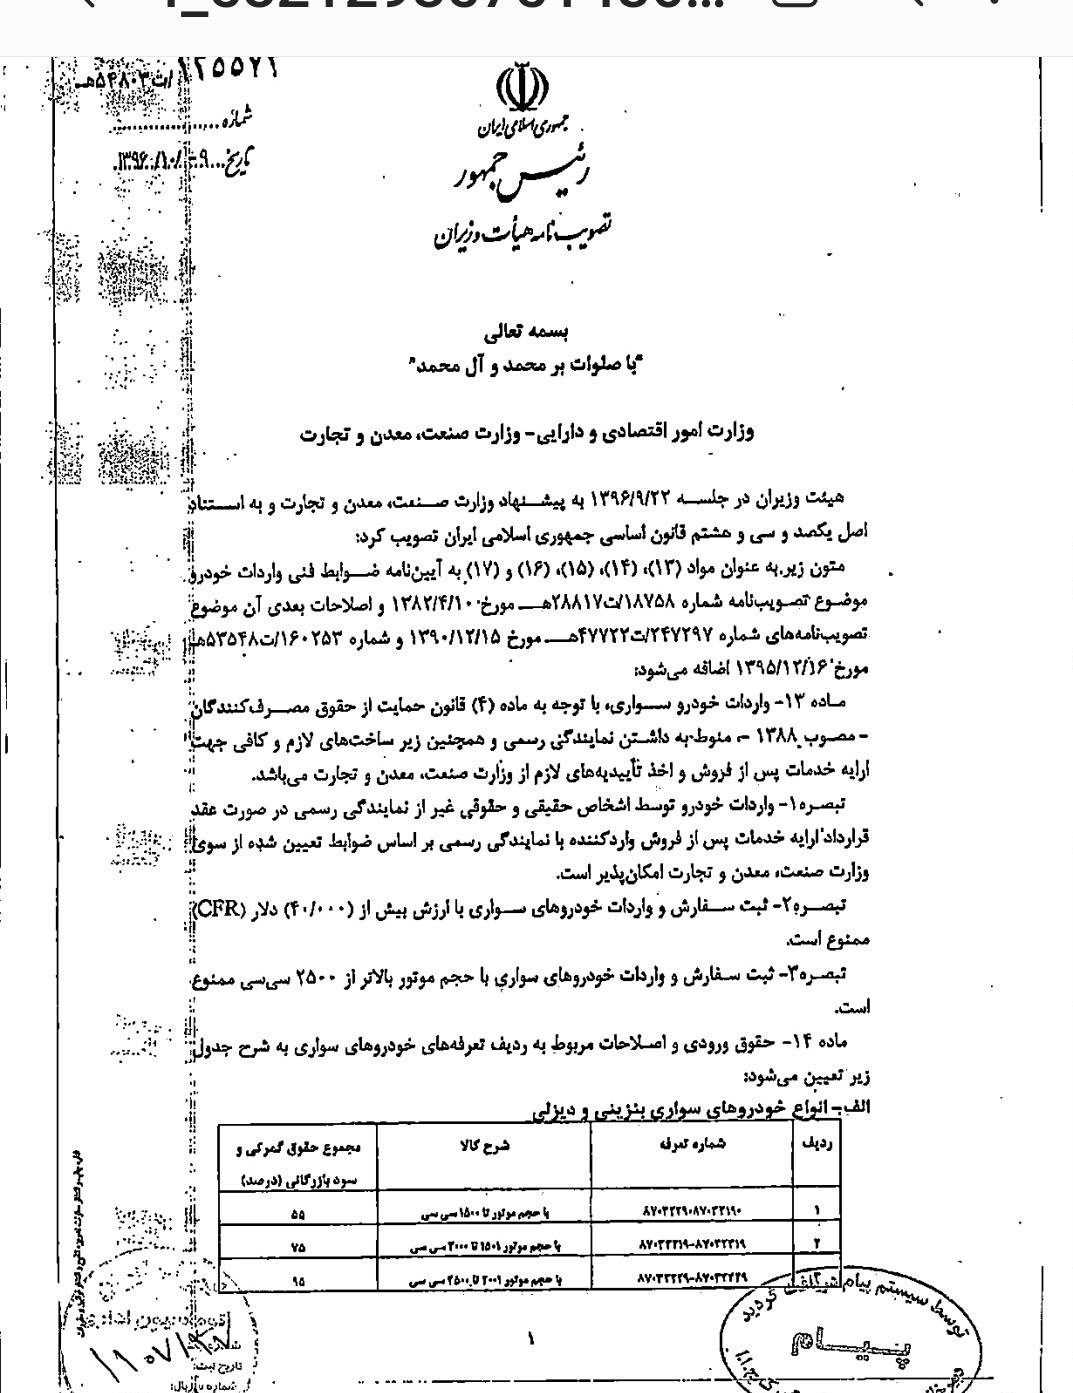 ۱۲۵۵۷۱/ت۵۴۸۰۳هـ
شماره
تاریخ ۱۳۹۶/۱۰/۰۹
جمهوری اسلامی ایران
رئیس جمهور
تصویب نامه هیأت وزیران
بسمه تعالی
"با صلوات بر محمد و آل محمد"
وزارت امور اقتصادی و دارایی- وزارت صنعت، معدن و تجارت
هیئت وزیران در جلسه ۱۳۹۶/۹/۲۲ به پیشنهاد وزارت صنعت، معدن و تجارت و به استناد
اصل یکصد و سی و هشتم قانون اساسی جمهوری اسلامی ایران تصویب کرد:
متون زیر به عنوان مواد (۱۳)، (۱۴)، (۱۵)، (۱۶) و (۱۷) به آیین‌نامه ضوابط فنی واردات خودرو
موضوع تصویب‌نامه شماره ۱۸۷۵۸/ت۲۸۸۱۷هـ مورخ ۱۳۸۲/۴/۱۰ و اصلاحات بعدی آن موضوع
تصویب‌نامه‌های شماره ۲۴۷۲۹۷/ت۴۷۷۲۲هـ مورخ ۱۳۹۰/۱۲/۱۵ و شماره ۱۶۰۲۵۳/ت۵۳۵۴۸هـ
مورخ ۱۳۹۵/۱۲/۱۶ اضافه می‌شود:
ماده ۱۳- واردات خودرو سواری، با توجه به ماده (۴) قانون حمایت از حقوق مصرف‌کنندگان
- مصوب ۱۳۸۸ - منوط به داشتن نمایندگی رسمی و همچنین زیر ساخت‌های لازم و کافی جهت
ارایه خدمات پس از فروش و اخذ تأییدیه‌های لازم از وزارت صنعت، معدن و تجارت می‌باشد.
تبصره۱- واردات خودرو توسط اشخاص حقیقی و حقوقی غیر از نمایندگی رسمی در صورت عقد
قرارداد ارایه خدمات پس از فروش واردکننده با نمایندگی رسمی بر اساس ضوابط تعیین شده از سوی
وزارت صنعت، معدن و تجارت امکان‌پذیر است.
تبصره۲- ثبت سفارش و واردات خودروهای سواری با ارزش بیش از (۴۰/۰۰۰) دلار (CFR)
ممنوع است.
تبصره۳- ثبت سفارش و واردات خودروهای سواری با حجم موتور بالاتر از ۲۵۰۰ سی‌سی ممنوع
است.
ماده ۱۴- حقوق ورودی و اصلاحات مربوط به ردیف تعرفه‌های خودروهای سواری به شرح جدول
زیر تعیین می‌شود:
الف- انواع خودروهای سواری بنزینی و دیزلی
ردیف شماره تعرفه شرح کالا مجموع حقوق گمرکی و
سود بازرگانی (درصد)
۱ ۸۷۰۳۲۲۹۰-۸۷۰۳۲۱۹۰ با حجم موتور تا ۱۵۰۰ سی سی ۵۵
۲ ۸۷۰۳۲۳۱۹-۸۷۰۳۲۳۱۹ با حجم موتور ۱۵۰۱ تا ۲۰۰۰ سی سی ۷۵
۳ با حجم موتور ۲۰۰۱ تا ۲۵۰۰ سی سی ۹۵
۱
توسط سیستم پیام شرگلفی گردید
پیام
تاریخ ثبت: